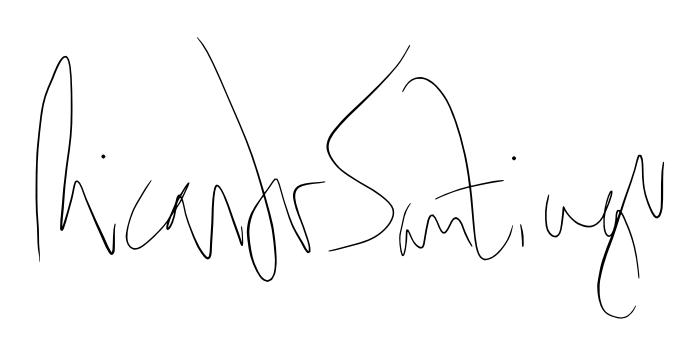 Ricardo Santiago